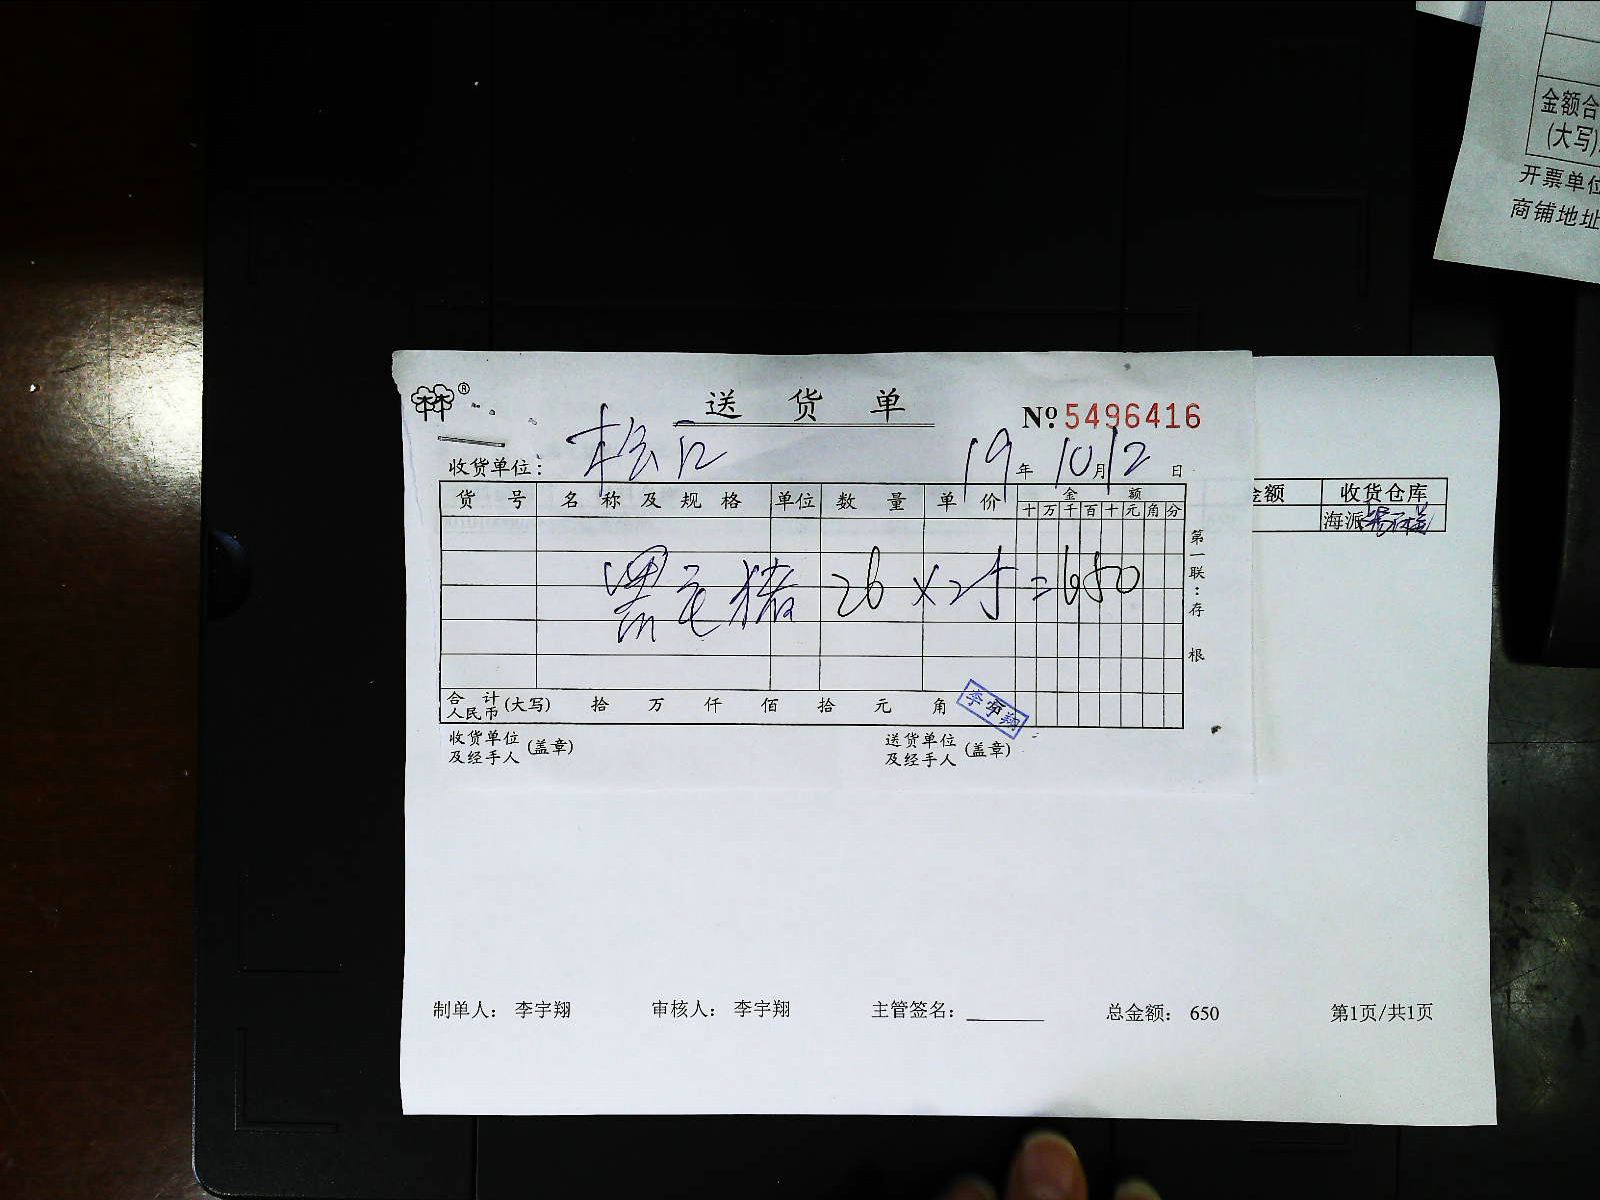 金额合
(大写)
开票单位
商铺地址
林林®
送货单
№ 5496416
收货单位: 松江 19年10月12日
货号 名称及规格 单位 数量 单价 金额
十万千百十元角分
黑毛猪 26 × 25 = 650
合计人民币(大写) 拾 万 仟 佰 拾 元 角 分
李宇翔
收货单位及经手人(盖章) 送货单位及经手人(盖章)
第一联:存根
金额 收货仓库
海派
制单人: 李宇翔 审核人: 李宇翔 主管签名: 总金额: 650 第1页/共1页